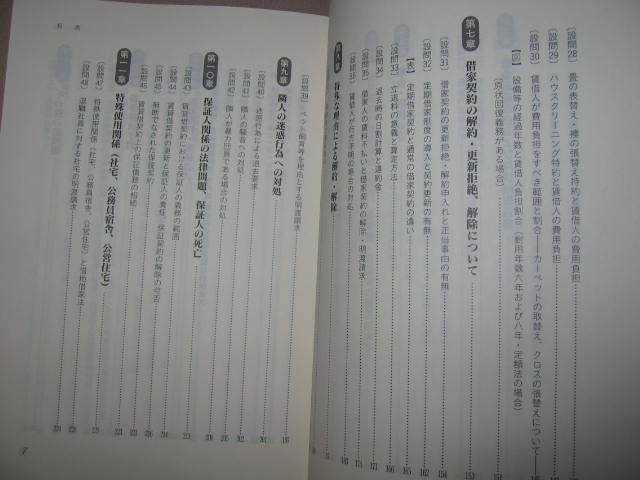 [設問28] 畳の表替え・襖の張替え特約と賃借人の費用負担
[設問29] ハウスクリーニング特約と賃借人の費用負担
[設問30] 賃借人が費用負担をすべき範囲と割合――カーペットの取替え、クロスの張替えについて
[図] 設備等の経過年数と賃借人負担割合(耐用年数六年および八年・定額法の場合)
(原状回復義務がある場合)
第七章 借家契約の解約・更新拒絶、解除について 153
[設問31] 借家契約の更新拒絶・解約申入れと正当事由の有無 154
[設問32] 定期借家制度の導入と契約更新の有無 162
[表] 定期借家契約と通常の借家契約の違い
[設問33] 立退料の意義と算定方法
[設問34] 退去時の日割計算と違約金 171
[設問35] 借家人の賃料不払いと借家契約の解除・明渡請求
[設問36] 賃借人が行方不明の場合の対処
第八章 特殊な理由による解約・解除
[設問39] ペット飼育等を理由とする明渡請求
第九章 隣人の迷惑行為への対処
[設問40] 迷惑行為による退去要求
隣人の騒音への対処
隣人が暴力団員である場合の対処
第一〇章 保証人関係の法律問題、保証人の死亡
[設問43] 賃貸借契約における保証人の義務の範囲
[設問44] 賃貸借契約の更新と保証人の責任、保証契約の解除の可否
[設問45] 無断でなされた保証契約
[設問46] 賃貸借契約上の保証債務の相続
第一一章 特殊使用関係(社宅、公務員宿舎、公営住宅)
[設問47] 特殊使用関係(社宅、公務員宿舎、公営住宅)と借地借家法
[設問48] 退職社員に対する社宅の明渡請求
目次
7